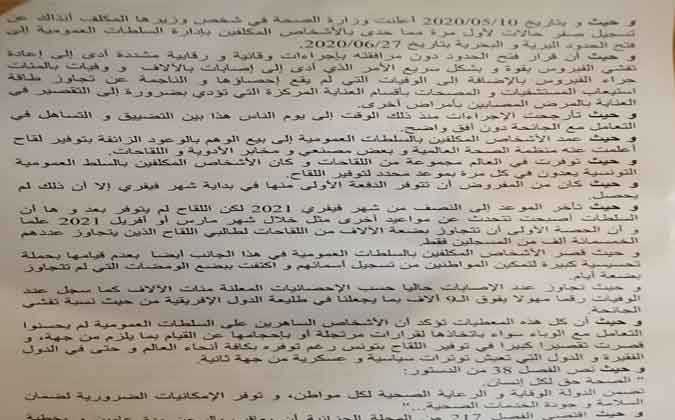 و حيث و بتاريخ 2020/05/10 أعلنت وزارة الصحة في شخص وزيرها المكلف آنذاك عن
تسجيل صفر حالات لأول مرة مما حدى بالأشخاص المكلفين بإدارة السلطات العمومية إلى
فتح الحدود البرية و البحرية بتاريخ 2020/06/27.
و حيث أن قرار فتح الحدود دون مرافقته بإجراءات وقائية و رقابية مشددة أدى إلى إعادة
تفشي الفيروس بقوة و بشكل سريع الأمر الذي أدى إلى إصابات بالآلاف و وفيات بالمئات
جراء الفيروس بالإضافة إلى الوفيات التي لم يقع إحصاؤها و الناجمة عن تجاوز طاقة
استيعاب المستشفيات و المصحات بأقسام العناية المركزة التي تؤدي بضرورة إلى التقصير في
العناية بالمرض المصابين بأمراض أخرى.
و حيث تأرجحت الإجراءات منذ ذلك الوقت إلى يوم الناس هذا بين التضييق و التساهل في
التعامل مع الجائحة دون أفق واضح.
و حيث عمد الأشخاص المكلفين بالسلطات العمومية إلى بيع الوهم بالوعود الزائفة بتوفير لقاح
أعلنت عنه منظمة الصحة العالمية و بعض مصنعي و مخابر الأدوية و اللقاحات.
و حيث توفرت في العالم مجموعة من اللقاحات و كان الأشخاص المكلفين بالسلط العمومية
التونسية يعدون في كل مرة بموعد محدد لتوفير اللقاح.
و حيث كان من المفروض أن تتوفر الدفعة الأولى منها في بداية شهر فيفري إلا أن ذلك لم
يحصل.
و حيث تأخر الموعد إلى النصف من شهر فيفري 2021 لكن اللقاح لم يتوفر بعد و ها أن
السلطات أصبحت تتحدث عن مواعيد أخرى مثل خلال شهر مارس أو أفريل 2021 علما
و أن الحصة الأولى أن تتجاوز بضعة الآلاف من اللقاحات لطالبي اللقاح الذين يتجاوز عددهم
الخمسمائة ألف من المسجلين فقط.
و حيث قصر الأشخاص المكلفين بالسلطات العمومية في هذا الجانب أيضا بعدم قيامها بحملة
تحسيسية كبيرة لتمكين المواطنين من تسجيل أسمائهم و اكتفت ببضع الومضات التي لم تتجاوز
بضعة أيام.
و حيث تجاوز عدد الإصابات حاليا حسب الإحصائيات المعلنة مئات الآلاف كما سجل عدد
الوفيات رقما مهولا يفوق الـ9 آلاف بما يجعلنا في طليعة الدول الإفريقية من حيث نسبة تفشي
الجائحة.
و حيث أن كل هذه المعطيات تؤكد أن الأشخاص الساهرين على السلطات العمومية لم يحسنوا
التعامل مع الوباء سواء باتخاذها لقرارات مرتجلة أو بإحجامها عن القيام بما يلزم من جهة، و
قصرت تقصيرا كبيرا في توفير اللقاح بتونس رغم توفره بكافة أنحاء العالم و حتى في الدول
الفقيرة و الدول التي تعيش توترات سياسية و عسكرية من جهة ثانية.
و حيث نص الفصل 38 من الدستور:
" الصحة حق لكل إنسان.
تضمن الدولة الوقاية و الرعاية الصحية لكل مواطن، و توفر الإمكانيات الضرورية لضمان
السلامة و جودة الخدمات الصحية..."
و حيث الفصل 217 من المجلة الجزائية